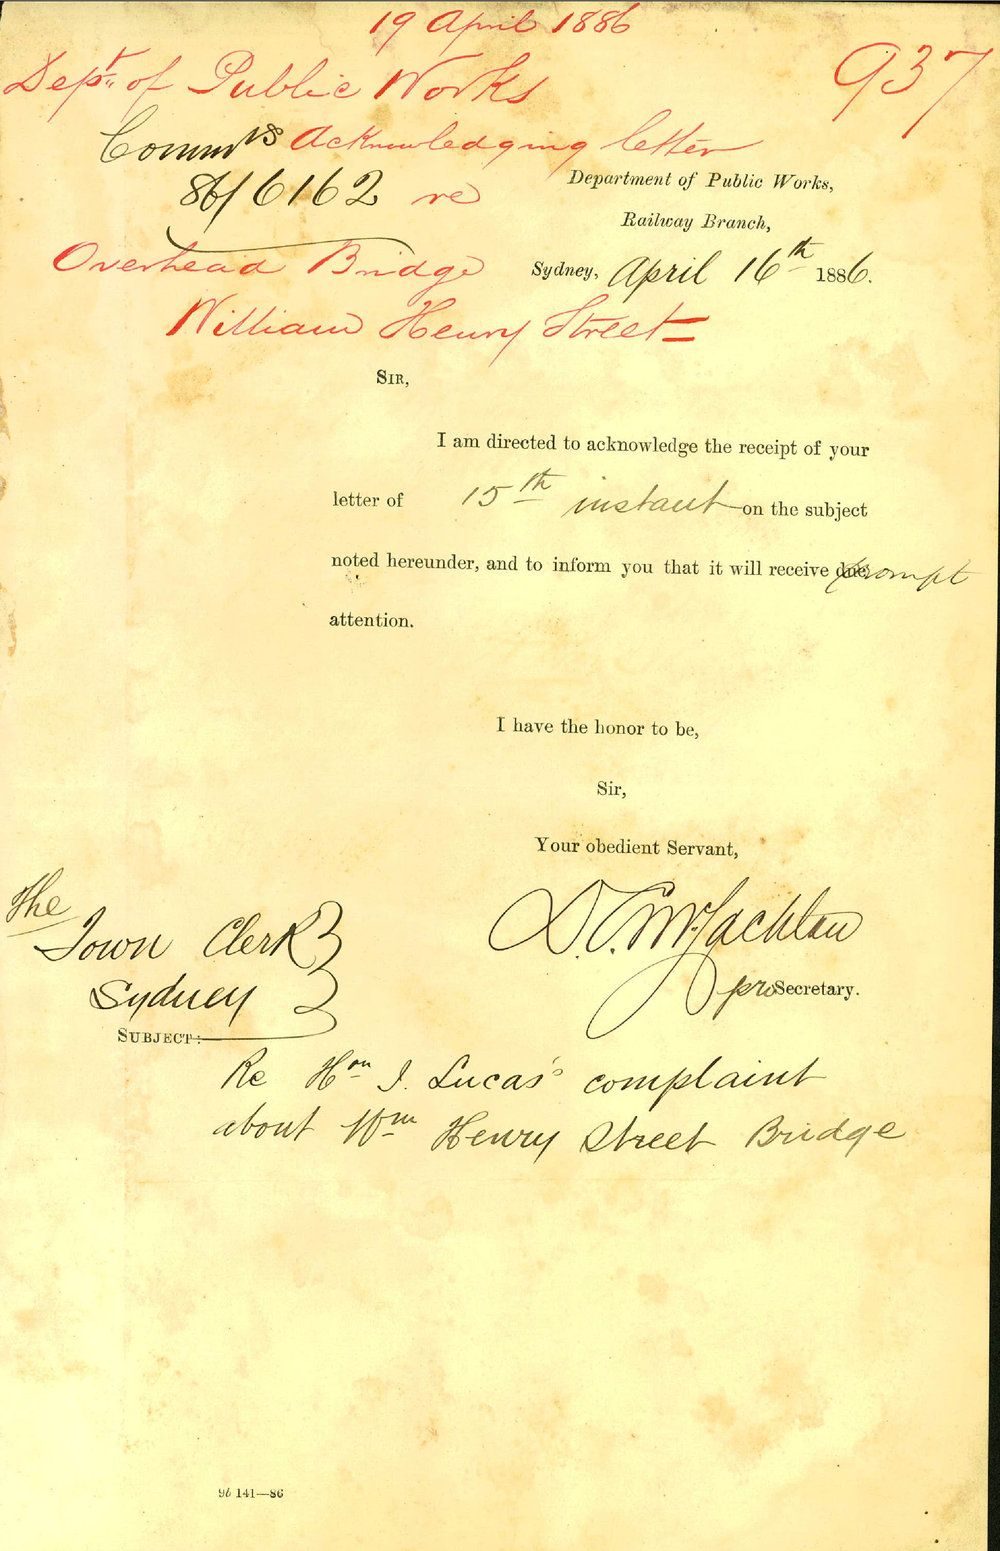 19 April 1886
937
Dept. of Public Works
Commrs Acknowledging letter
86/6162 re
Overhead Bridge
William Henry Street
Department of Public Works,
Railway Branch,
Sydney, April 16th 1886.
SIR,
I am directed to acknowledge the receipt of your
letter of 15th instant on the subject
noted hereunder, and to inform you that it will receive due prompt
attention.
I have the honor to be,
Sir,
Your obedient Servant,
D. C. McLachlan
pro Secretary.
The
Town Clerk
Sydney
SUBJECT:
Re Hon J. Lucas' complaint
about Wm Henry Street Bridge
9b 141—86